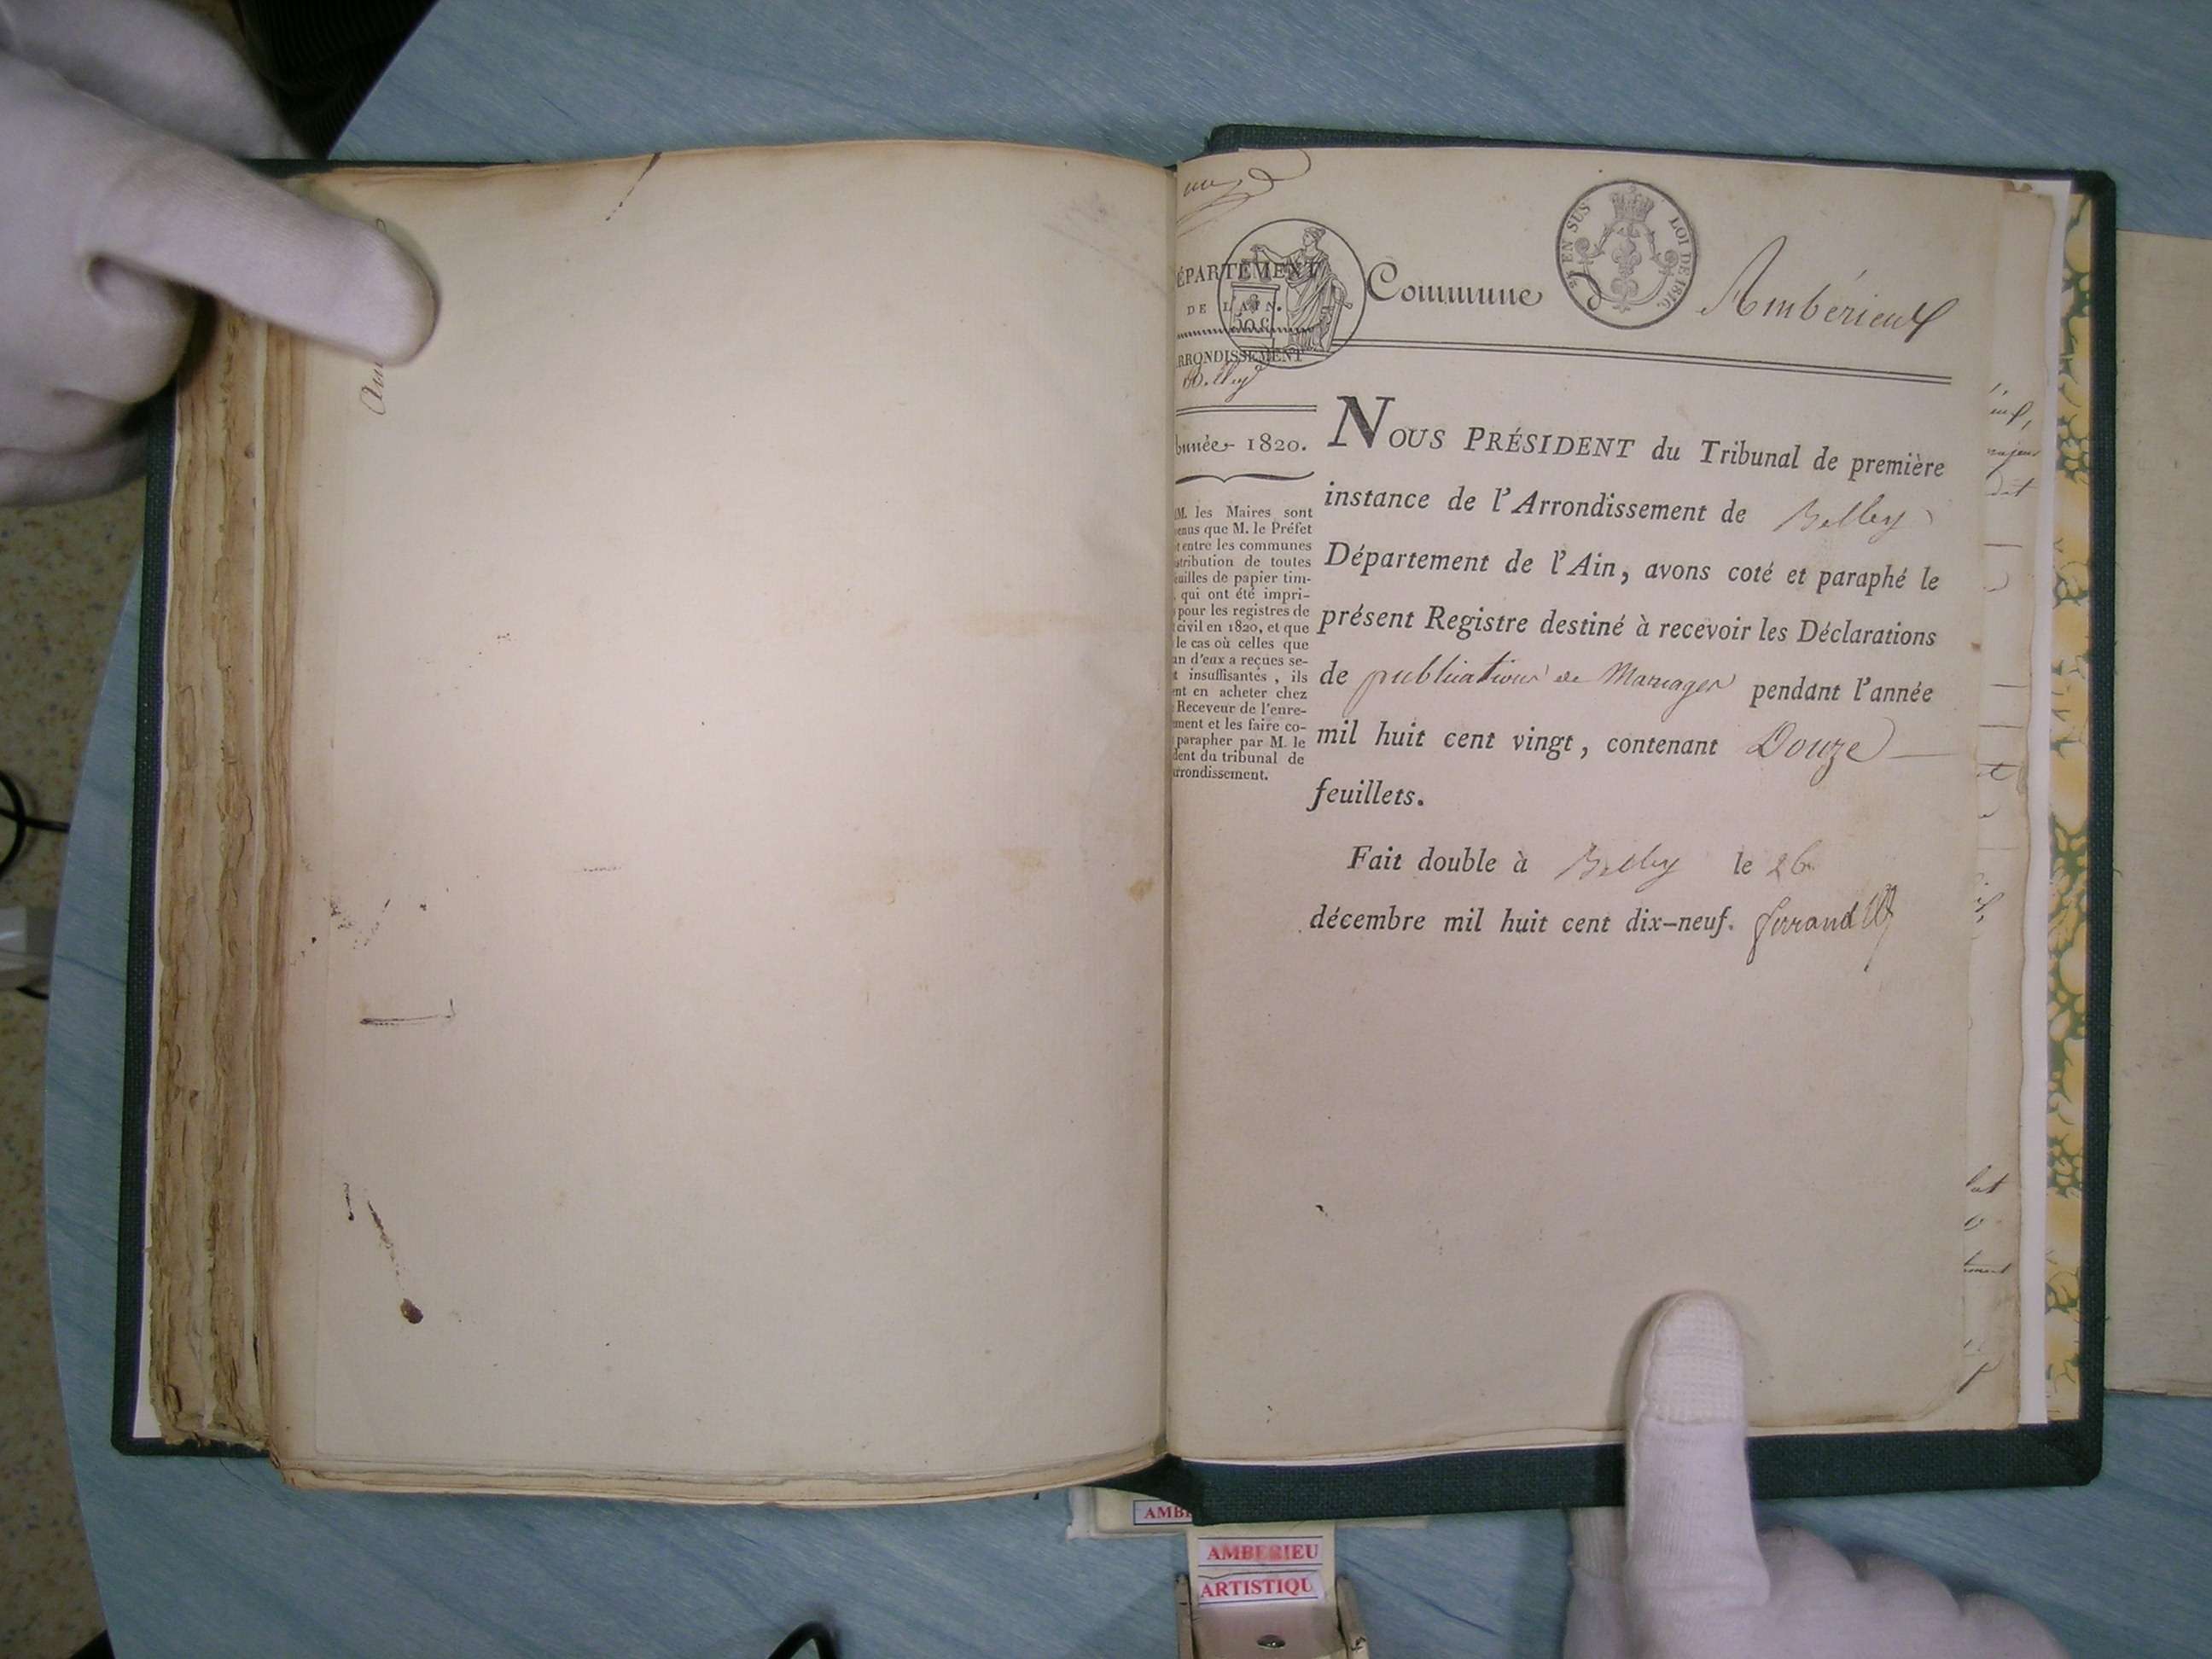 DÉPARTEMENT
DE L'AIN.
50 c.
ARRONDISSEMENT
Belley
Année 1820.
MM. les Maires sont
venus que M. le Préfet
t entre les communes
stribution de toutes
euilles de papier tim-
, qui ont été impri-
pour les registres de
civil en 1820, et que
le cas où celles que
un d'eux a reçues se-
t insuffisantes, ils
ent en acheter chez
Receveur de l'enre-
ment et les faire co-
parapher par M. le
dent du tribunal de
arrondissement.
Commune d Ambérieux
EN SUS LOI DE 1816.
NOUS PRÉSIDENT du Tribunal de première
instance de l'Arrondissement de Belley
Département de l'Ain, avons coté et paraphé le
présent Registre destiné à recevoir les Déclarations
de publications de Mariages pendant l'année
mil huit cent vingt, contenant Douze
feuillets.
Fait double à Belley le 26
décembre mil huit cent dix-neuf.
AMBE
AMBERIEU
ARTISTIQU